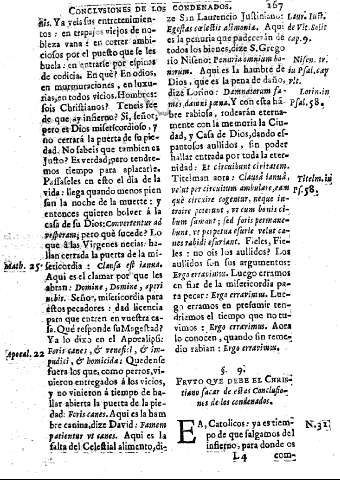 CONCLVSIONES DE LOS CONDENADOS.
267
nis. Ya veis sus entretenimien-
tos: en trapajos viejos de no-
bleza vana: en correr ambi-
ciosos por el puesto que se les
huela: en entrarse por espinas
de codicia. En què? En odios,
en murmuraciones, en luxu-
rias, en todos vicios. Hombres:
sois Christianos? Teneis fee
de que ay infierno? Si, señor,
pero es Dios misericordioso, y
no cerrarà la puerta de su pie-
dad. No sabeis que tambien es
Justo? Es verdad, pero tendre-
mos tiempo para aplacarle.
Passaseles en esto el dia de la
vida: llega quando menos pien-
san la noche de la muerte: y
entonces quieren bolver à la
casa de su Dios: Convertentur ad
vesperam; pero què sucede? Lo
que à las Virgenes necias: ha-
llan cerrada la puerta de la mi-
sericordia: Clausa est ianua.
Math. 25.
Aqui es el clamar por que les
abran: Domine, Domine, aperi
nobis. Señor, misericordia para
estos pecadores: dad licencia
para que entren en vuestra ca-
sa. Què responde su Magestad?
Ya lo dixo en el Apocalips:
Apocal. 22
Foris canes, & venefici, & im-
pudici, & homicidæ: Quedense
fuera los que, como perros, vi-
vieron entregados à los vicios,
y no vinieron à tiempo de ha-
llar abierta la puerta de la pie-
dad: Foris canes. Aqui es la ham
bre canina, dize David: Famem
patientur vt canes. Aqui es la
falta del Celestial alimento, di-
ze San Laurencio Justiniano:
Egestas cœlestis alimonia. Aqui
es la penuria que padecerán de
todos los bienes, dize S. Grego
rio Niseno: Penuria omnium bo-
norum. Aqui es la hambre de
Dios, que es la pena de daño,
dize Lorino: Damnatorum fa-
mes, damni pœna. Y con esta ham
bre rabiosa, rodearán eterna-
mente con la memoria la Ciu-
dad, y Casa de Dios, dando es-
pantosos aullidos, sin poder
hallar entrada por toda la eter-
nidad: Et circuibunt civitatem.
Titelman aora: Clausâ ianuâ,
velut per circuitum ambulare, eam
que circuire cogentur, neque in-
troire poterunt, vt cum bonis ci-
bum sumant; sed foris permane-
bunt, vt perpetua esurie velut ca-
nes rabidi esuriant. Fieles, Fie-
les: no ois los aullidos? Los
aullidos son sus argumentos:
Ergo erravimus. Luego erramos
en fiar de la misericordia para
pecar: Ergo erravimus. Lue-
go erramos en presumir ten-
driamos el tiempo que no tu-
vimos: Ergo erravimus. Aora
lo conocen, quando sin reme-
dio rabian: Ergo erravimus.
§. 9.
FRVTO QVE DEBE EL CHRIS-
tiano sacar de estas Conclusio-
nes de los condenados.
EA, Catolicos: ya es tiem-
po de que salgamos del
infierno, para donde os
N. 31
L4
com-
Laur. Iust.
de Vit. Solit
cap. 9.
Nisen. tr.
in Psal. cap
vlt.
Lorin. in
Psal. 58.
Titelm. in
Psal. 58.